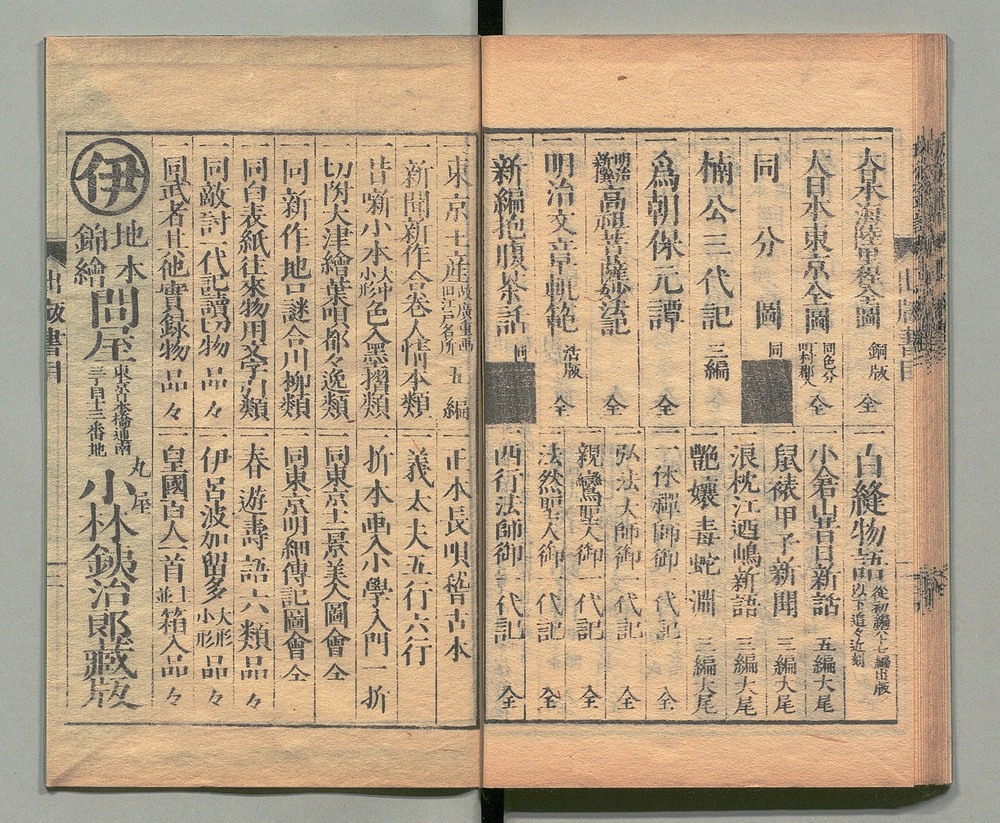 一大日本海陸里程全圖 銅版 全
一大日本東京全圖 同色分 町村郡入 全
一同 國分圖 同
一楠公三代記 三編
一爲朝保元譚 全
一明治新撰 高祖菩薩妙法記 全
一明治文章軌範 活版 全
一新編抱腹茶話 同
一白縫物語 從初編六十七編出版 以下追々近刻
一小倉山昔日新話 五編大尾
一鼠祿甲子新聞 三編大尾
一浪枕江迺嶋新語 三編大尾
一艶孃毒蛇淵 三編大尾
一一休禪師御一代記 全
一弘法大師御一代記 全
一親鸞聖人御一代記 全
一法然聖人御一代記 全
一西行法師御一代記 全
一東京土産 故廣重画 旧江戸名所 五編
一新聞新作合巻人情本類
一昔噺小本 大中小形 色入墨摺類
一切附大津繪葉唄都々逸類
一同新作地口謎合川柳類
一同白表紙往來物用文字引類
一同敵討一代記讀切物品々
一同武者其他實録物品々
一正本長唄稽古本
一義太夫五行六行
一折本画入小學入門一折
一同東京十二景美人圖會 全
一同東京明細傳記圖會 全
一春遊壽語六類品々
一伊呂波加留多 大形 小形 品々
一皇國百人一首 並 箱入品々
伊
地本
錦繪
問屋
東京京橋通南
三丁目十三番地
丸屋
小林鉄治郎藏版
出版書目